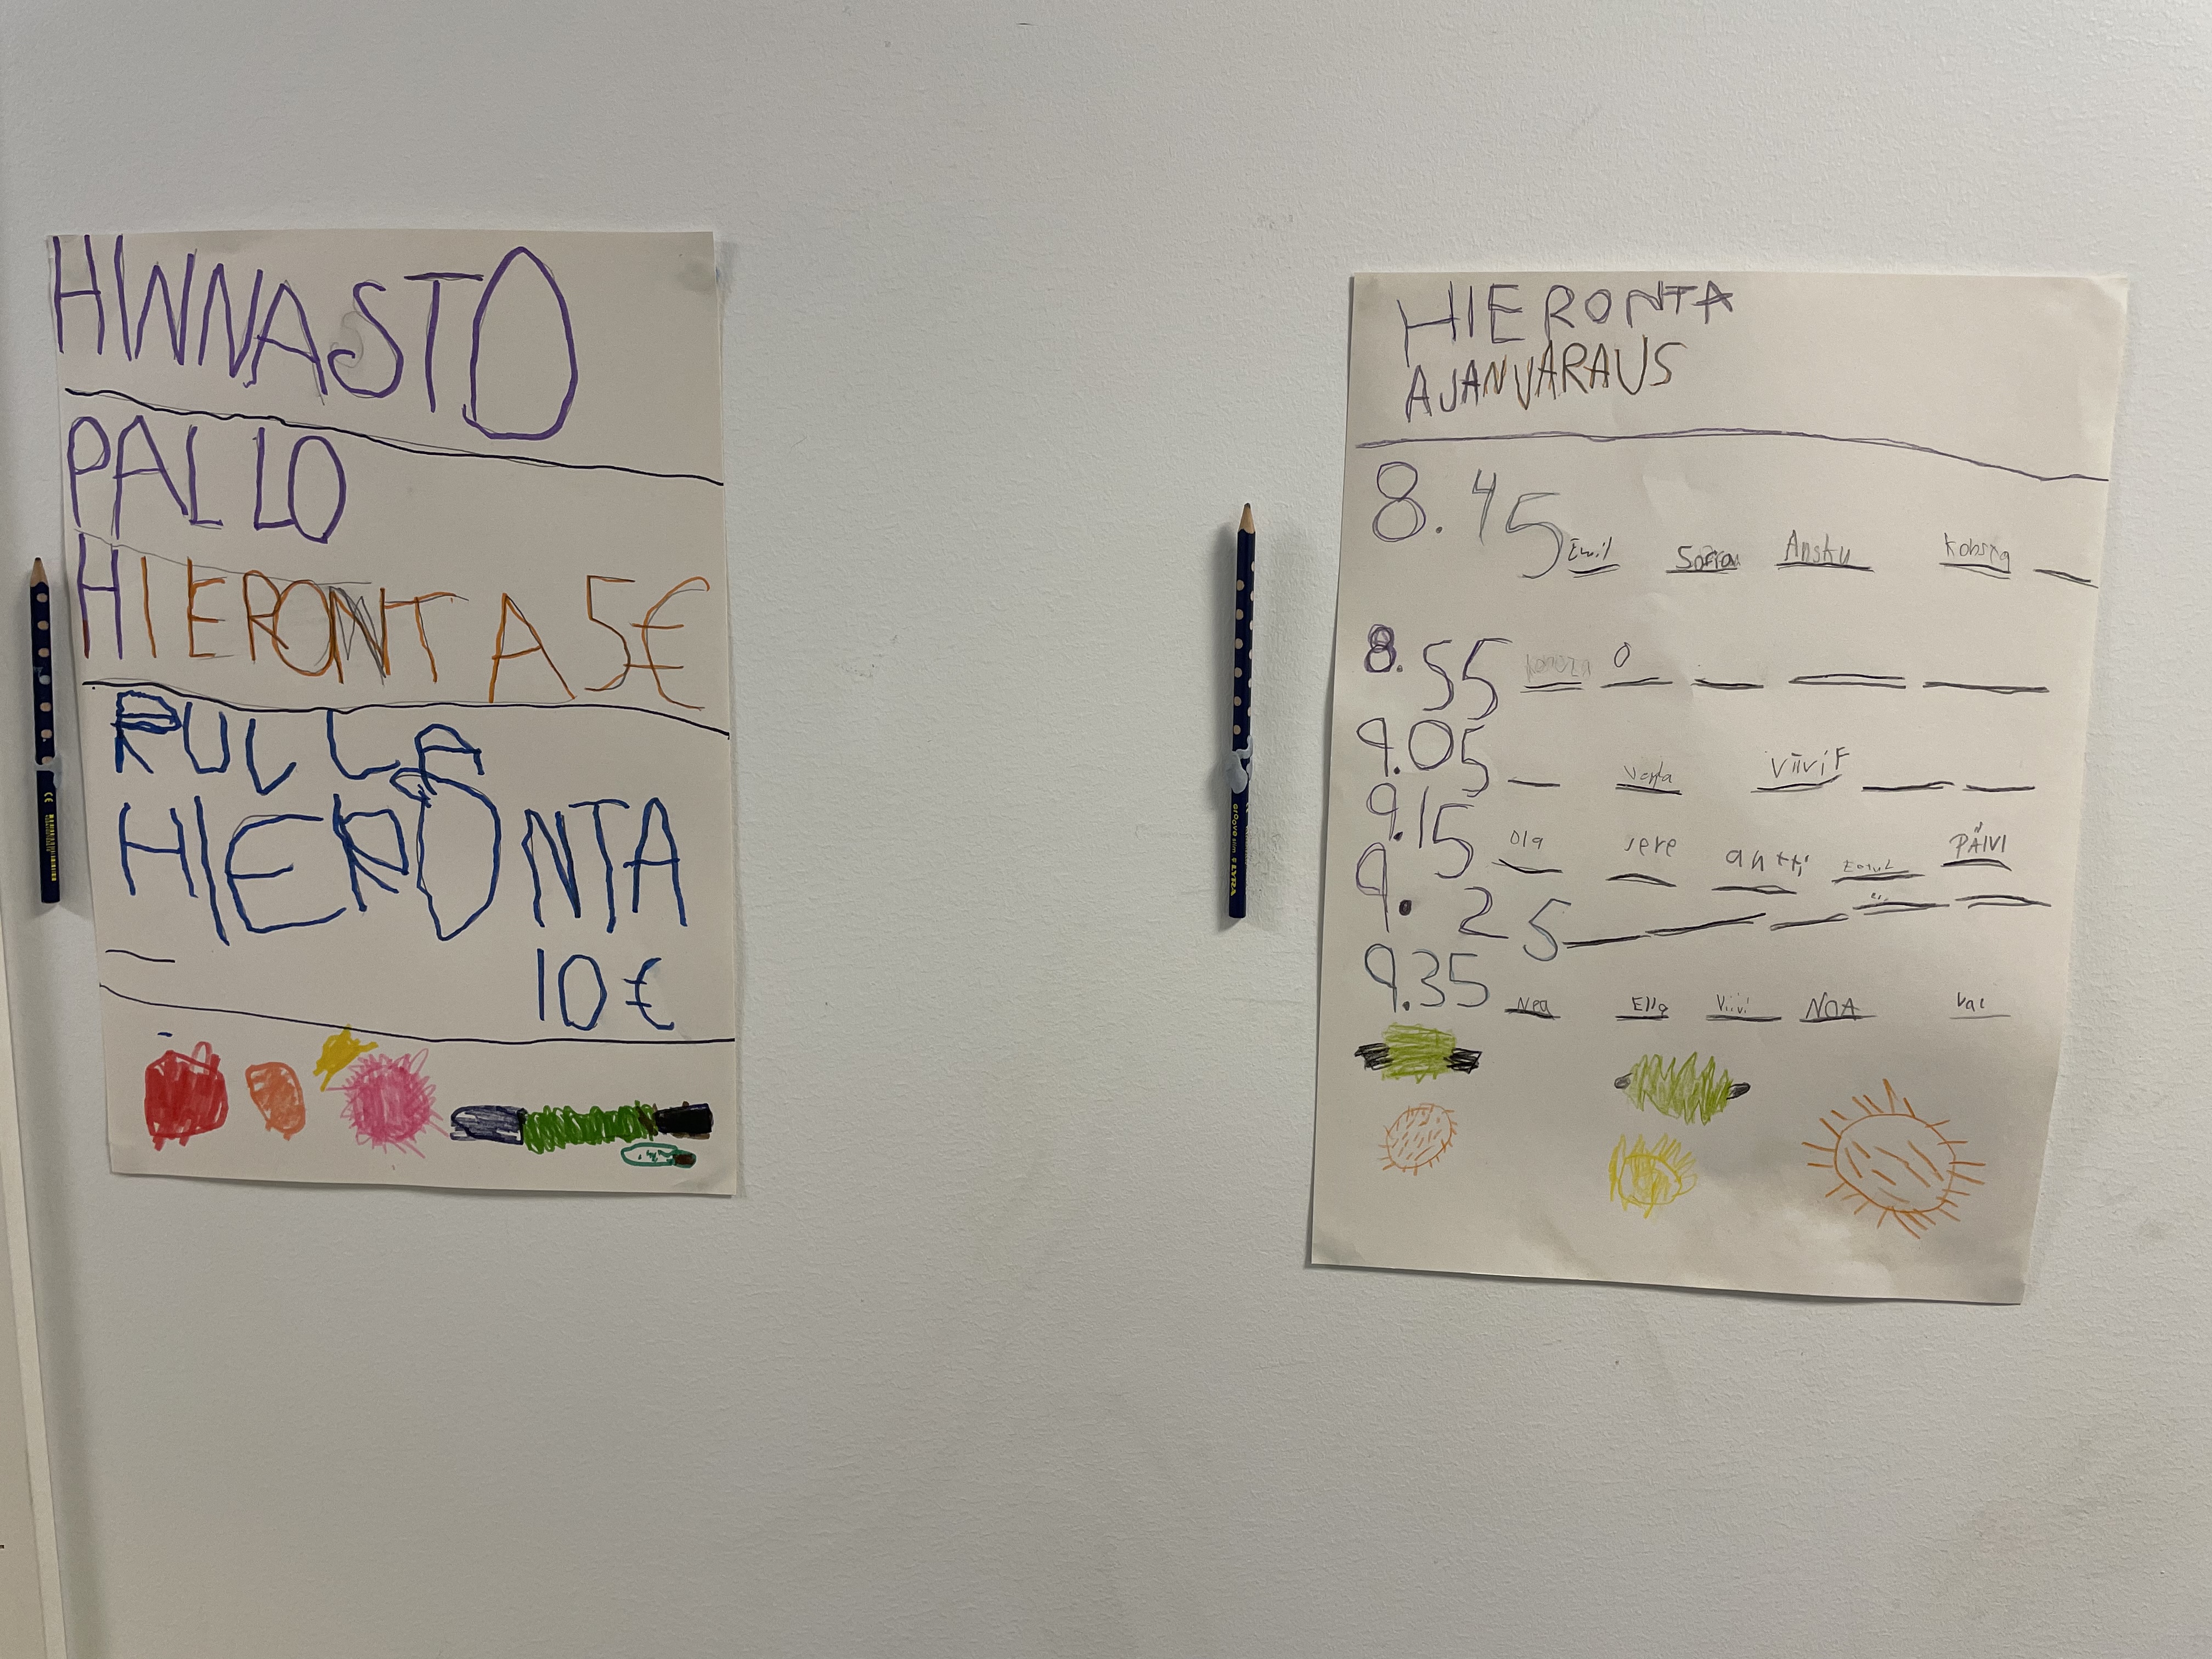 HINNASTO
PALLO
HIERONTA 5€
RULLA
HIERONTA
10€
HIERONTA
AJANVARAUS
8.45 Emil Sofia Ansku
8.55 O
9.05 Venla Viivi F
9.15 Ola sere antti Emil PÄIVI
9.25
9.35 Nea Ella Viivi NOA
LYRA